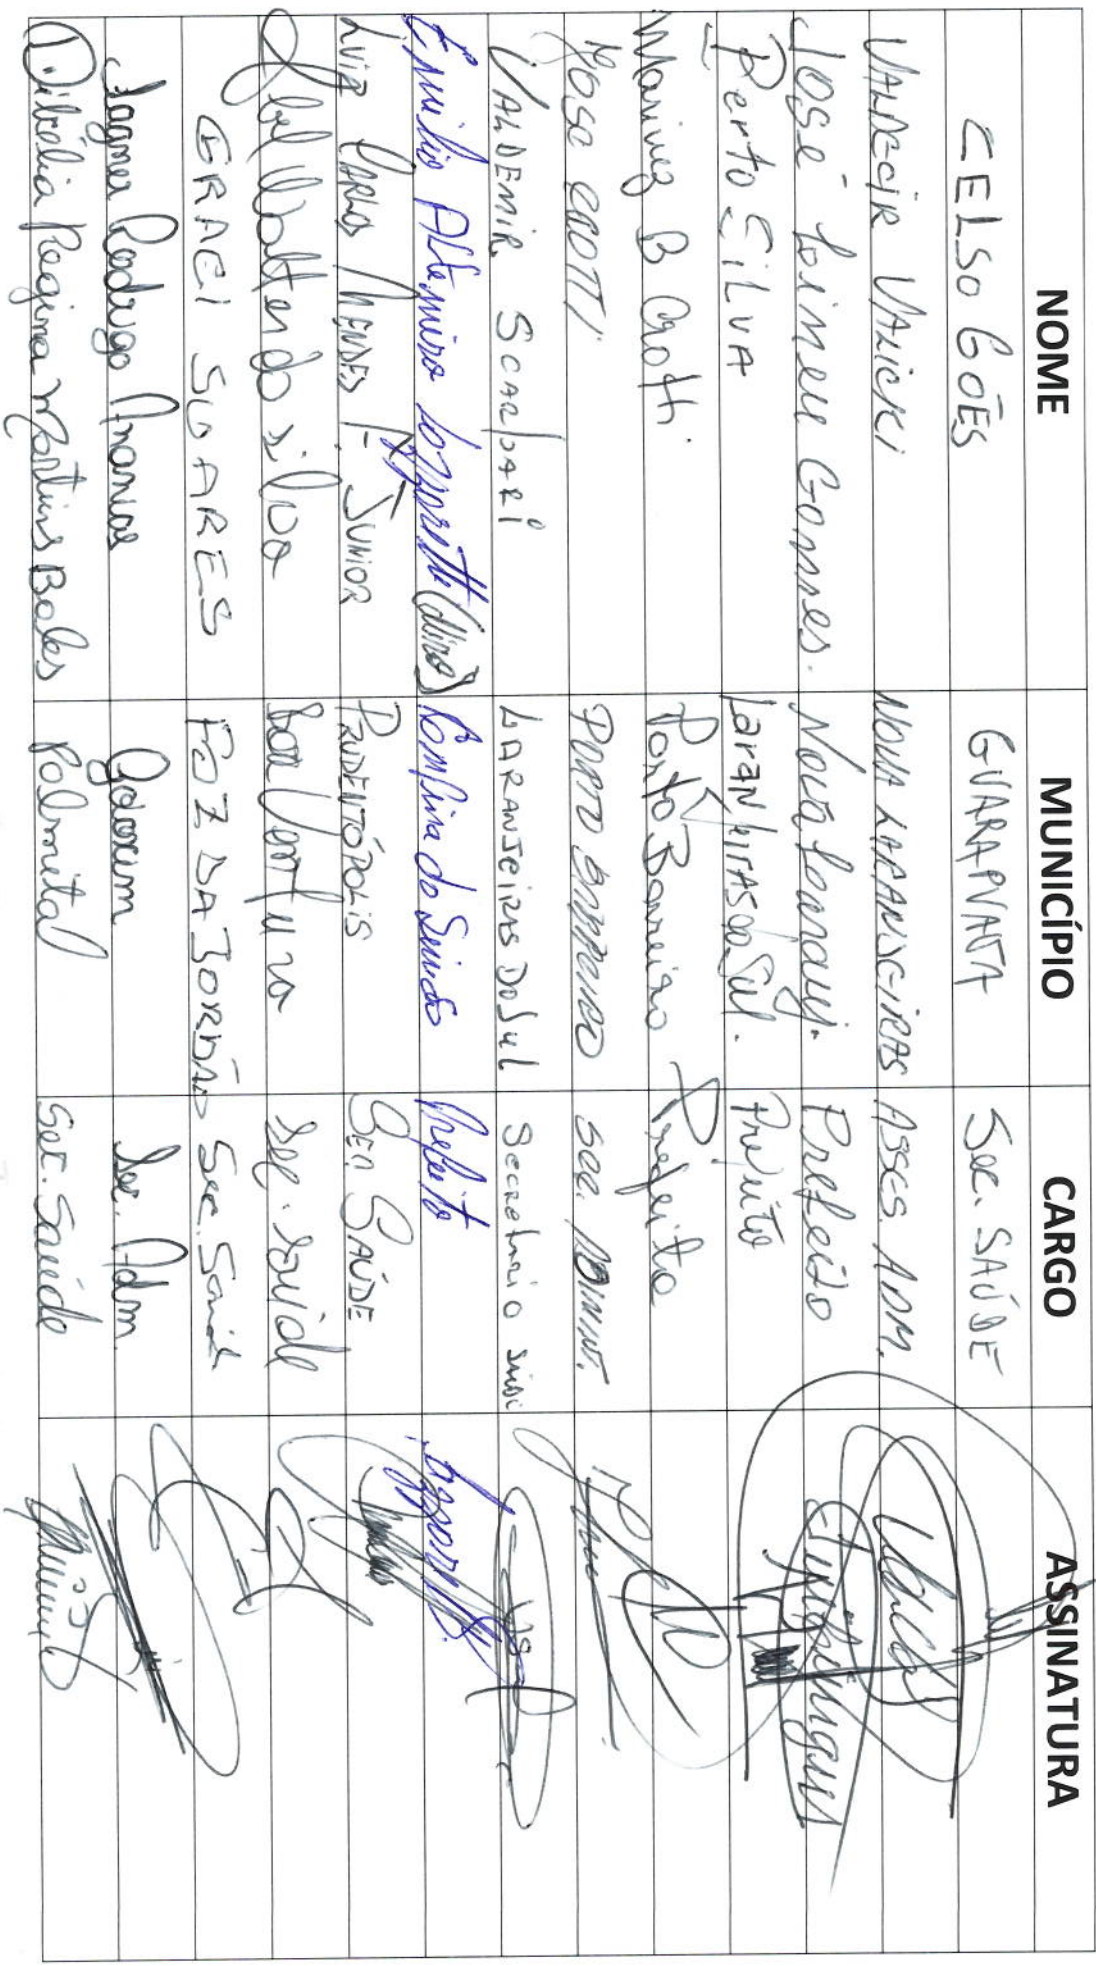 NOME MUNICÍPIO CARGO ASSINATURA
CELSO GÓES GUARAPUAVA Sec. SAÚDE
VALDECIR VALICKI NOVA LARANJEIRAS ASSES. ADM.
José Loineu Gomes. Nova Laranj. Prefeito
Berto SiLVA LaranjeirasdoSul. Prefeito
Marinez B Crotti. Porto Barreiro Prefeito
José CROTTI PORTO BARREIRO Sec. ADMINT.
VALDEMIR SCARPARI LARANJEIRAS DO SUL Secretario
Emilio Altemiro Lazzaretti (Miro) Campina do Simão Prefeito
LUIZ CARLOS MENDES F. JUNIOR PRUDENTÓPOLIS SEC SAÚDE
Abel da silva Boa Ventura Sec. Saúde
GRACI SOARES FOZ DA JORDÃO Sec. Saúde
Rodrigo Ananias Goioxim Sec. Adm
Dibélia Regina Martins Bales Palmital Sec. Saúde